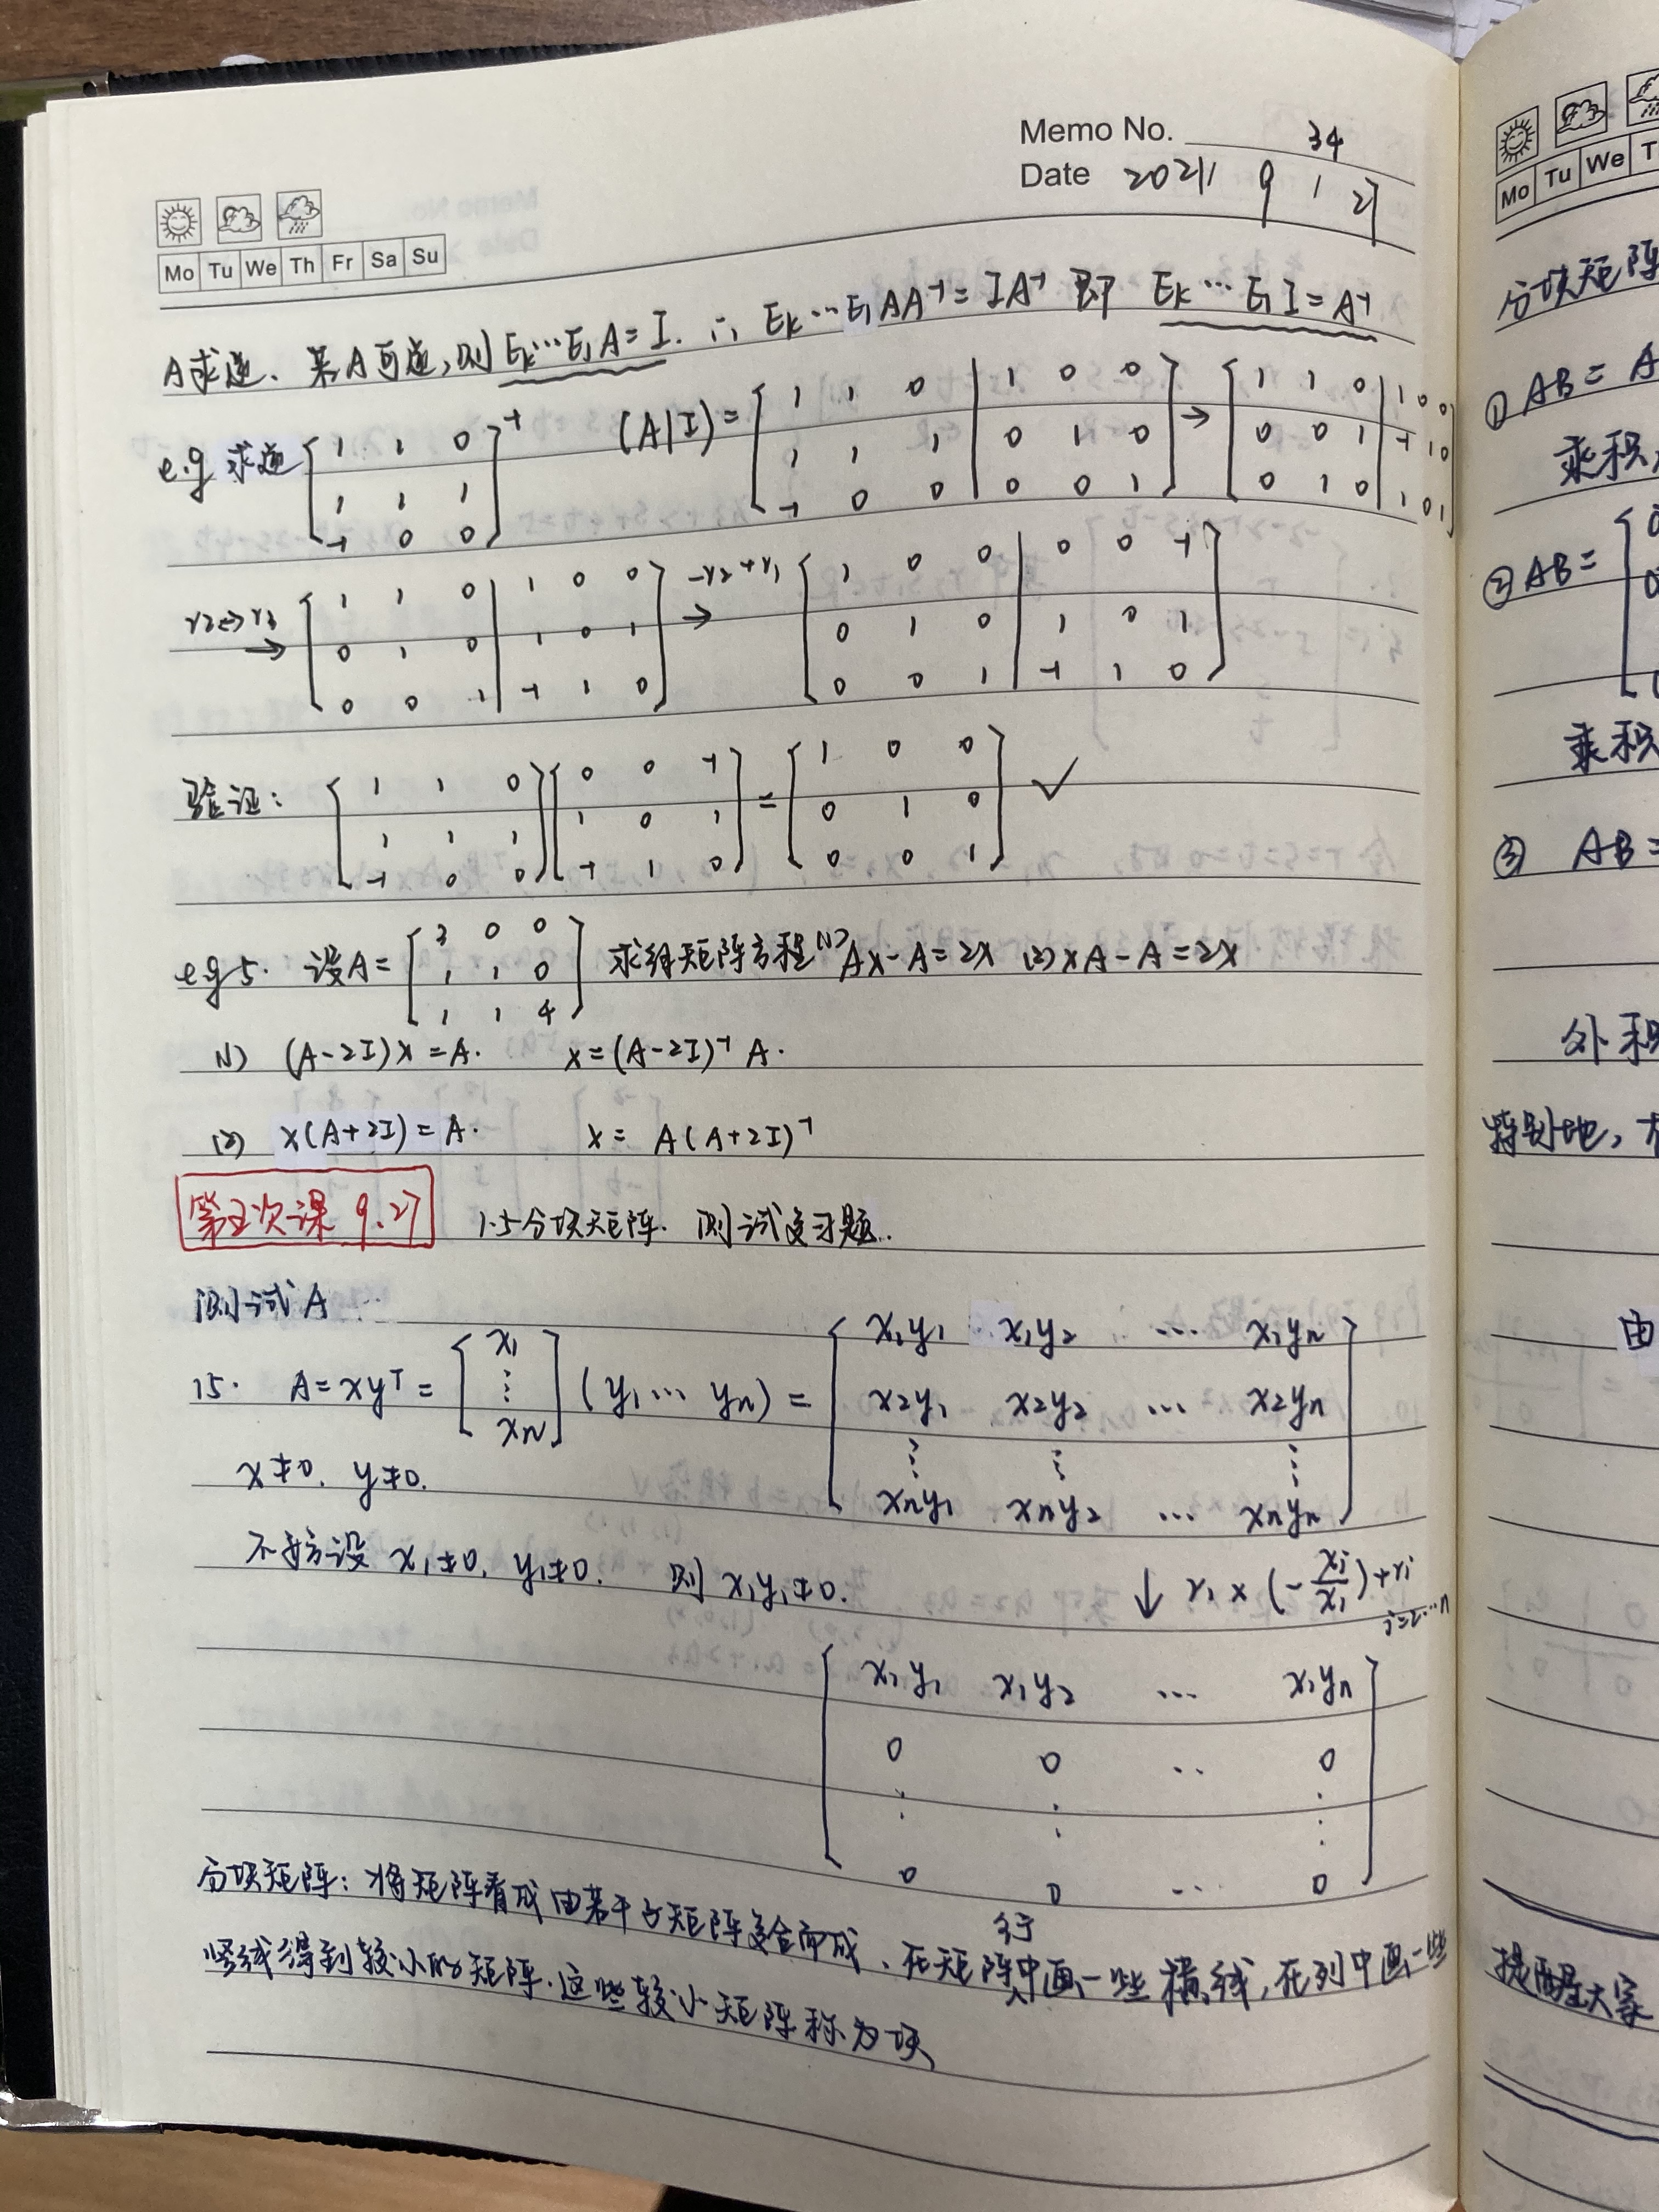 Memo No. 34
Date 2021 / 9 / 27
Mo Tu We Th Fr Sa Su
A求逆、若A可逆,则 Ek⋯E1A=I. ∴ Ek⋯E1AA⁻¹=IA⁻¹ 即 Ek⋯E1I=A⁻¹
e.g 求逆 [1 1 0; 1 1 1; -1 0 0]⁻¹ (A|I)= [1 1 0 | 1 0 0; 1 1 1 | 0 1 0; -1 0 0 | 0 0 1] → [1 1 0 | 1 0 0; 0 0 1 | -1 1 0; 0 1 0 | 1 0 1]
r2↔r3 → [1 1 0 | 1 0 0; 0 1 0 | 1 0 1; 0 0 1 | -1 1 0] -r2+r1 → [1 0 0 | 0 0 -1; 0 1 0 | 1 0 1; 0 0 1 | -1 1 0]
验证: [1 1 0; 1 1 1; -1 0 0] [0 0 -1; 1 0 1; -1 1 0] = [1 0 0; 0 1 0; 0 0 1] ✓
eg5. 设A= [3 0 0; 1 1 0; 1 1 4] 求解矩阵方程 (1) AX-A=2X (2) XA-A=2X
(1) (A-2I)X=A. X=(A-2I)⁻¹ A.
(2) X(A+2I)=A. X= A(A+2I)⁻¹
第五次课 9.27 1.5分块矩阵. 测试复习题.
测试A
15. A=xyᵀ= [x1; ⋮; xn] (y1⋯ yn) = [x1y1 x1y2 ⋯ x1yn; x2y1 x2y2 ⋯ x2yn; ⋮ ⋮ ⋮; xny1 xny2 ⋯ xnyn]
x≠0. y≠0.
不妨设 x1≠0, y1≠0. 则 x1y1≠0. ↓ r1×(-xi/x1)+ri i=2⋯n
[x1y1 x1y2 ⋯ x1yn; 0 0 ⋯ 0; ⋮ ⋮ ⋮; 0 0 ⋯ 0]
分块矩阵: 将矩阵看成由若干子矩阵复合而成、在矩阵行中画一些横线,在列中画一些
竖线得到较小的矩阵.这些较小矩阵称为块
Mo Tu We T
分块矩阵
① AB= A
乘积
② AB=
乘积
③ AB=
外积
特别地,
由
提醒大家